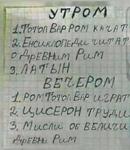 УТРОМ
1. ТОТАЛ ВАРОМ КАЧАТ
2. ЕНСИКЛОПЕДИ ЧИТАТ
О ДРЕВНИМ РИМ
3. ЛАТЫН
ВЕЧЕРОМ
1. РОМ ТОТАЛ ВАР ИГРАТ
2. ЦИСЕРОН ТРУДИ
3. МИСЛИ ОБ ВЕЛИЧИ
ДРЕВНИ РИМ